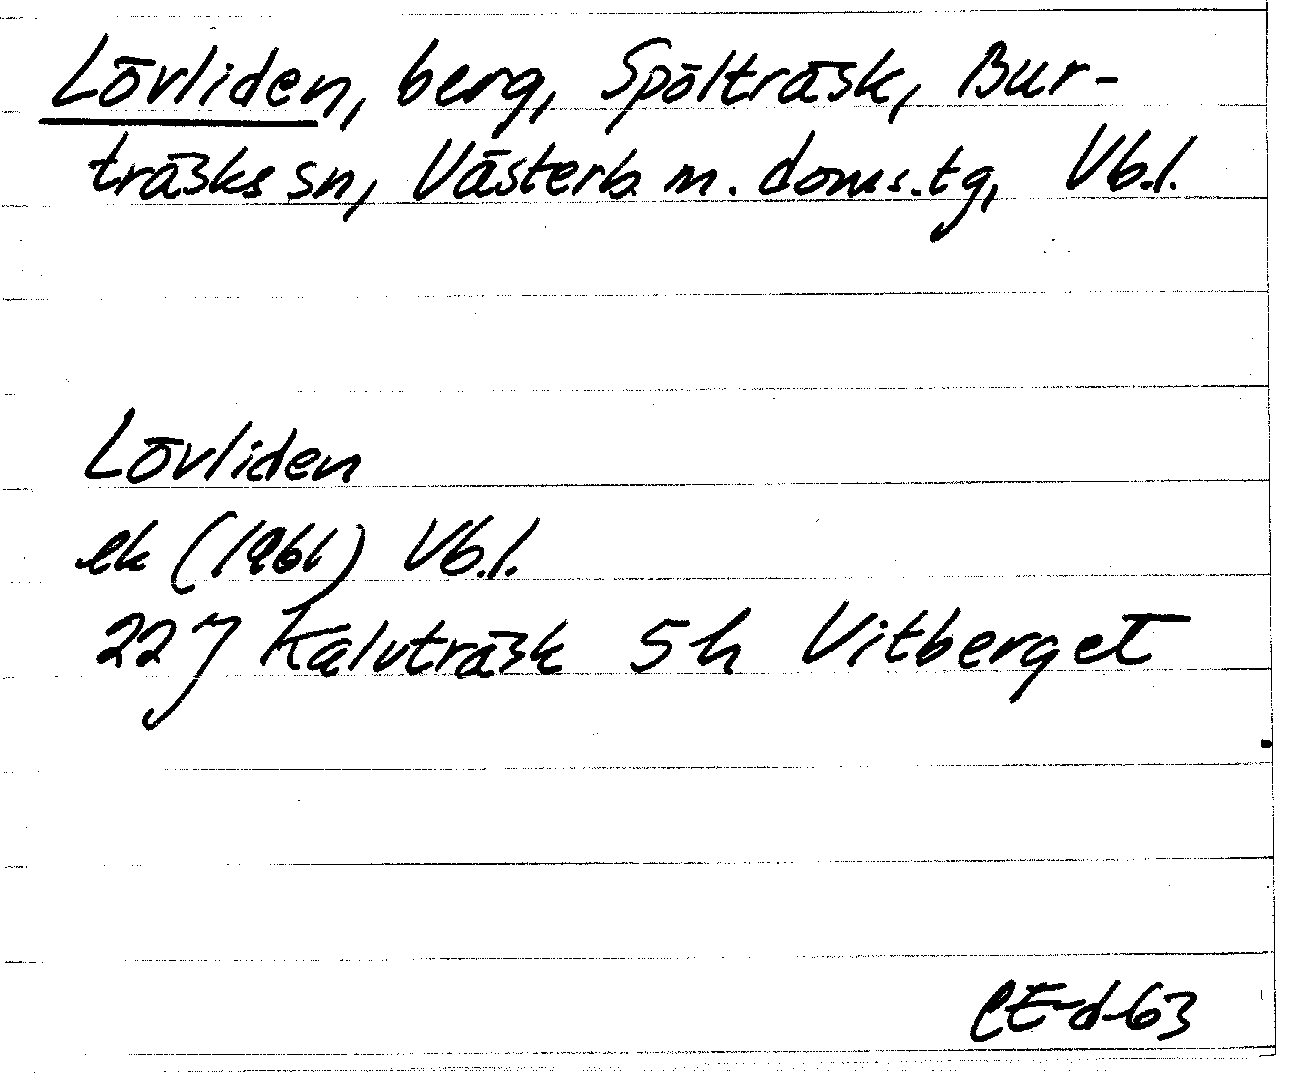 Lövliden, berg, Spölträsk, Bur-
träsks sn, Västerb. m. doms.tg, Vb.l.
Lövliden
ek (1961) Vb.l.
22 J Kalvträsk 5 h Vitberget